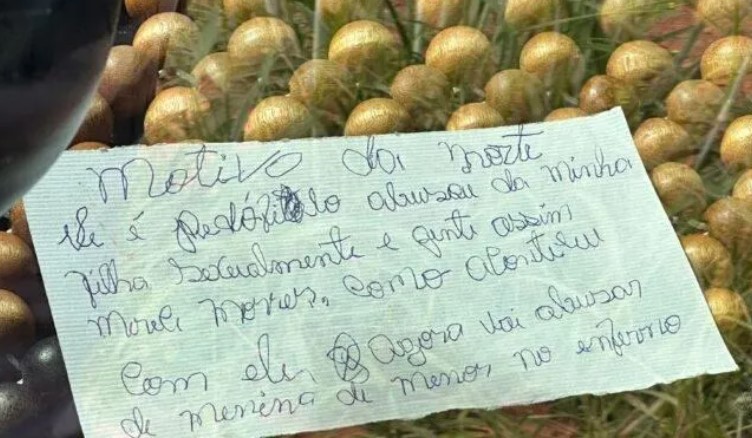 Motivo da morte
Ele é pedófilo abusou da minha
filha sexualmente e gente assim
mereci morrer, como aconteceu
com ele, Agora vai abusar
de menina di menor no enferno